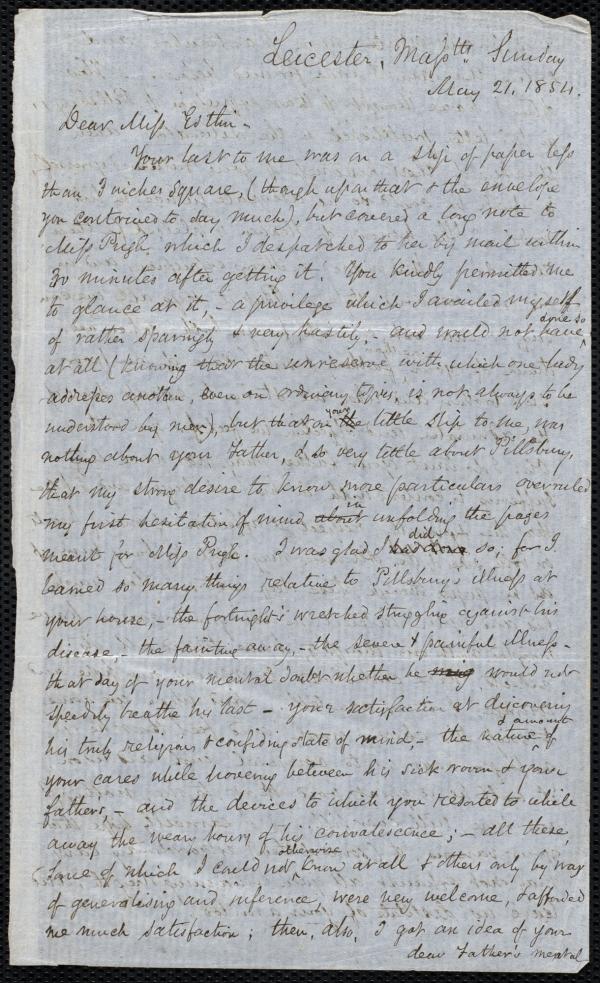 Leicester, Masstts. Sunday
May 21, 1854.
Dear Miss Estlin -
Your last to me was on a slip of paper less
than 3 inches square, (though upon that & the envelope
you contrived to say much), but covered a long note to
Miss Pugh, which I despatched to her by mail within
30 minutes after getting it. You kindly permitted me
to glance at it, - a privilege which I availed myself
of rather sparingly & very hastily, - and would not have done so
at all (knowing that the unreserve with which one lady
addresses another, even on ordinary topics, is not always to be
understood by men), but that on your the little slip to me, was
nothing about your Father, & so very little about Pillsbury,
that my strong desire to know more particulars overruled
my first hesitation of mind about in unfolding the pages
meant for Miss Pugh. I was glad I had done did so; for I
learned so many things relative to Pillsbury's illness at
your house; - the fortnight's wretched struggling against his
disease, - the fainting away, - the severe & painful illness -
that day of your mental doubt whether he would not
speedily breathe his last - your satisfaction at discovering
his truly religious & confiding state of mind, - the nature & amount of
your cares while hovering between his sick room & your
father's, - and the devices to which you resorted to while
away the weary hours of his convalescence; - all these,
(some of which I could not otherwise know at all & others only by way
of generalising and inference, were very welcome, & afforded
me much satisfaction; then, also, I got an idea of your
dear Father's mental